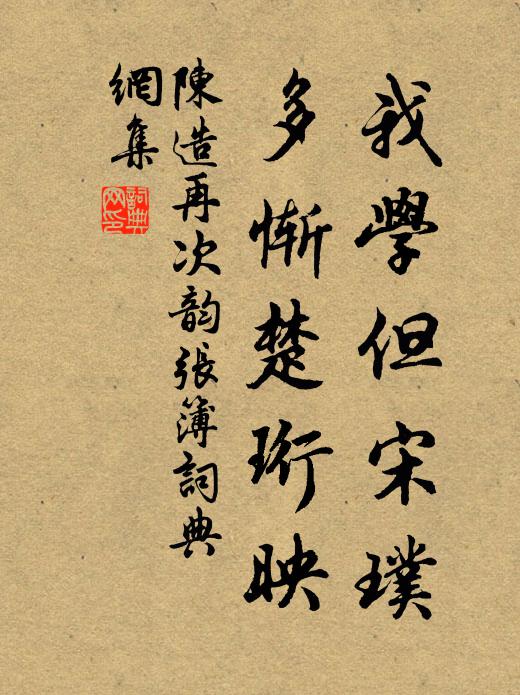 我學但宋璞
多慚楚珩映
陳造再次韵張簿詞典
網集
詞典
网印